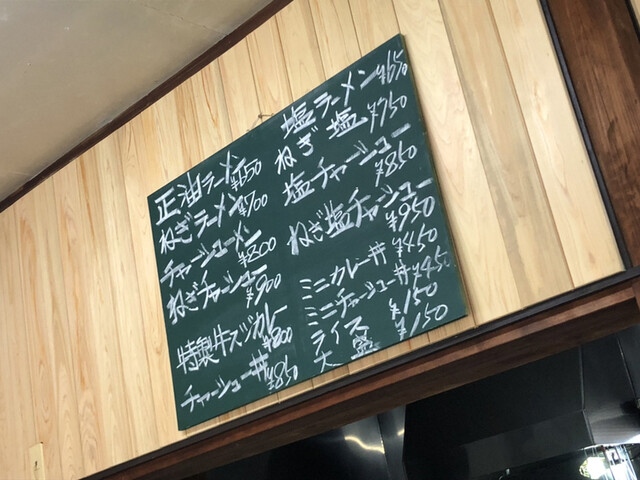 正油ラーメン ¥650
ねぎラーメン ¥700
チャーシューメン ¥800
ねぎチャーシュー ¥900
特製牛スジカレー ¥800
チャーシュー丼 ¥850
塩ラーメン ¥650
ねぎ塩 ¥750
塩チャーシュー ¥850
ねぎ塩チャーシュー ¥950
ミニカレー丼 ¥450
ミニチャーシュー丼 ¥450
ライス ¥150
大盛 ¥150